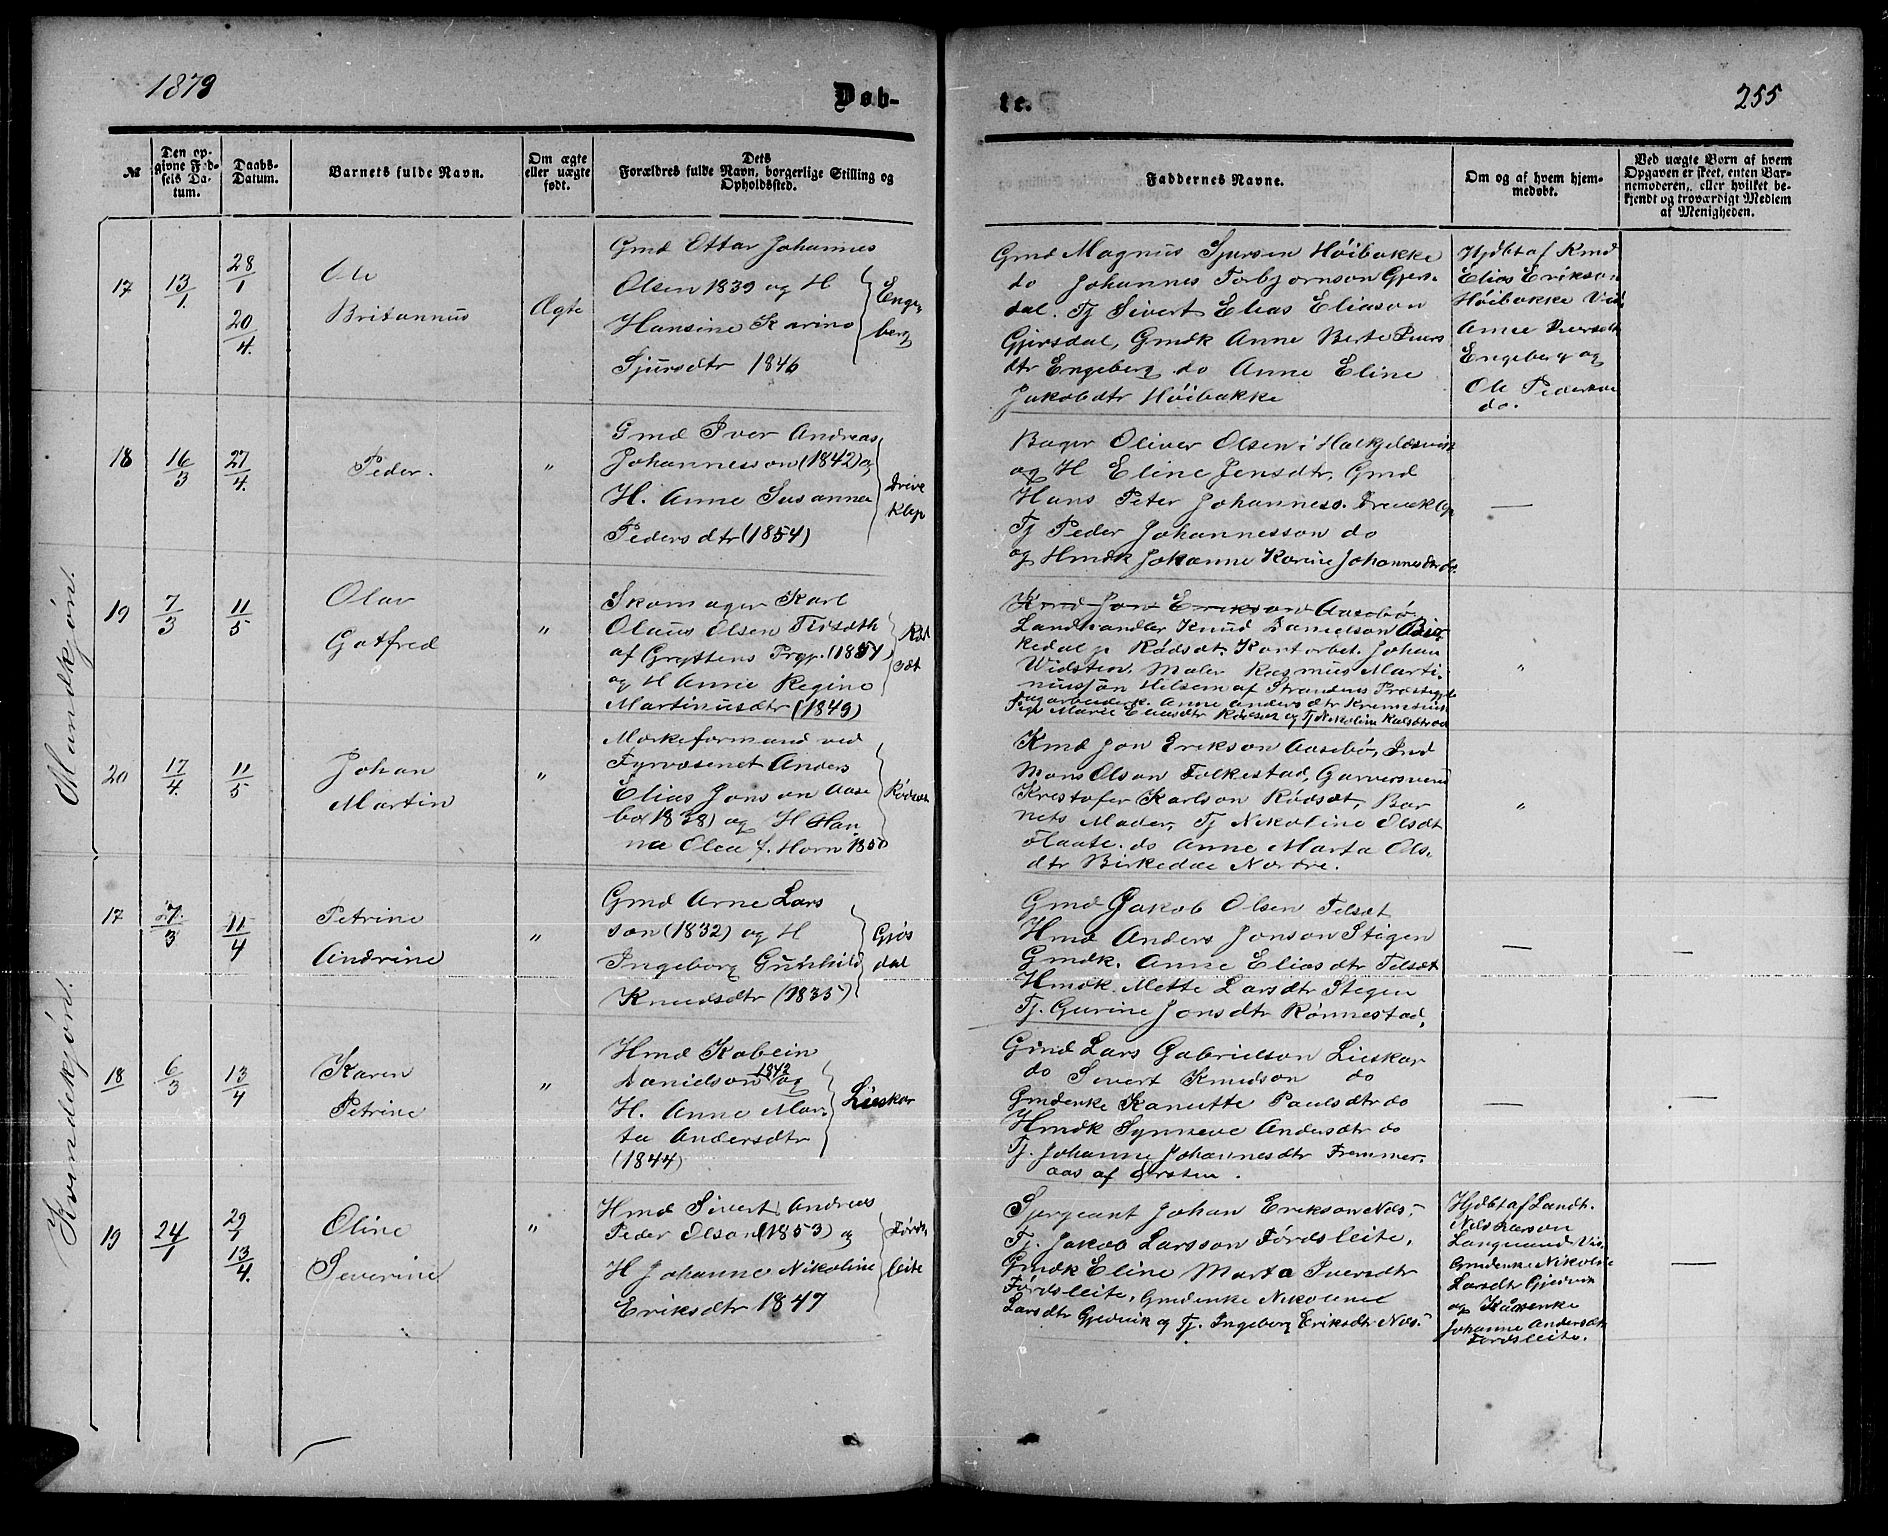 1879
Døb-
te.
255
№
Den op-
givne Fød-
sels Da-
tum.
Daabs-
Datum.
Barnets fulde Navn.
Om ægte
eller uægte
født.
Dets
Forældres fulde Navn, borgerlige Stilling og
Opholdssted.
Faddernes Navne.
Om og af hvem hjem-
medøbt.
Ved uægte Børn af hvem
Opgaven er skeet, enten Bar-
nemoderen, eller hvilket be-
kjendt og troværdigt Medlem
af Menigheden.
Mandkjøn.
17
13/1
28/1
20/4.
Ole
Britannus
Ægte
Gmd Ottar Johannes
Olsen 1839 og H
Hansine Karine
Sjursdtr 1846
Enge-
berg
Gmd Magnus Sjursen Høibakke
do Johannes Torbjørnson Gjers-
dal. Tj Sivert Elias Eliason
Gjersdal, Gmdk Anne Berte Ivers
dtr Engeberg do Anne Eline
Jakobdtr Høibakke
Hjdbt af Kmd
Elias Erikson
Høibakke Vid.
Anne Iversdtr
Engeberg og
Ole Pederson
do.
18
16/3
27/4.
Peder.
"
Gmd Iver Andreas
Johannesson (1842) og
H. Anne Susanna
Pedersdtr (1854)
Dreve
Klep
Bager Oliver Olsen i Halkjeldsvik
og H Eline Jensdtr, Gmd
Hans Peter Johanness. Dreveklep
Tj Peder Johannesson do
og Hmdk Johanne Karine Johannesdtr do.
—
19
7/3
11/5
Olav
Gotfred
"
Skomager Karl
Olaus Olsen
af Gryttens Prgj. (1851)
og H Anne Regine
Martinusdtr (1849)
Rød
sæt
Kmd Jon Erikson Aasebø
Landhandler Knud Danielson Bir-
kedal p Rødsæt. Kontorbet. Johan
Widsten. Maler Rasmus Marti-
nussøn Hilsem af Strandens Præstegjeld
Pige Marie Eliasdtr Rødsæt og Tj Nikoline
"
20
17/4.
11/5
Johan
Martin
"
Merkeformand ved
Fyrvæsenet Anders
Elias Jonson Aase
bø (1838) og H Han
na Olea f. Horn 1850
Rødsæt
Kmd Jon Erikson Aasebø, Ind
Mons Olson Folkestad, Garversvend
Kristofer Karlson Rødsæt, Bar
nets Moder, Tj Nikoline Olsdt
Flaate. do Anne Marta Ols-
dtr Birkedal Nordre.
"
Kvindekjøn.
17
7/3
11/4
Petrine
Andrine
"
Gmd Arne Lars
son (1832) og H
Ingeborg Gunhild
Knudsdtr (1835)
Gjøs
dal
Gmd Jakob Olsen Telsæt
Hmd Anders Jonson Stigen
Gmdk. Anne Eliasdtr Telsæt
Hmdk. Mette Larsdtr Stigen
Tj. Gurine Jonsdtr Rønnestad,
—
—
18
6/3
13/4
Karen
Petrine
"
Hmd Kolbein
Danielson 1842 og
H. Anne Mar-
ta Andersdtr
(1844)
Lieskar
Gmd Lars Gabrielson Lieskar
do Sivert Knudson do
Gmdenke Kanutte Paulsdtr do
Hmdk Synneve Andersdtr do
Tj. Johanne Johannesdtr Fremmer-
aas af Ørsten.
—
—
19
24/1
29/1
13/4.
Oline
Severine
"
Hmd Sivert Andreas
Peder Olson (1853) og
H Johanne Nikoline
Eriksdtr 1847
Førds-
leite
Sjergeant Johan Erikson Nes,
Tj. Jakob Larsson Førdsleite,
Gmdk Eline Marta Iversdtr
Førdsleite, Gmdenke Nikoline
Larsdtr Gjedvik og Tj. Ingeborg Eriksdtr Nes.
Hjdbt af Landh.
Nils Larson
Langesund Vid.
Gmdenke Nikoline
Larsdtr Gjedvik
og Kårenke
Johanne Andersdtr
Førdsleite.
—